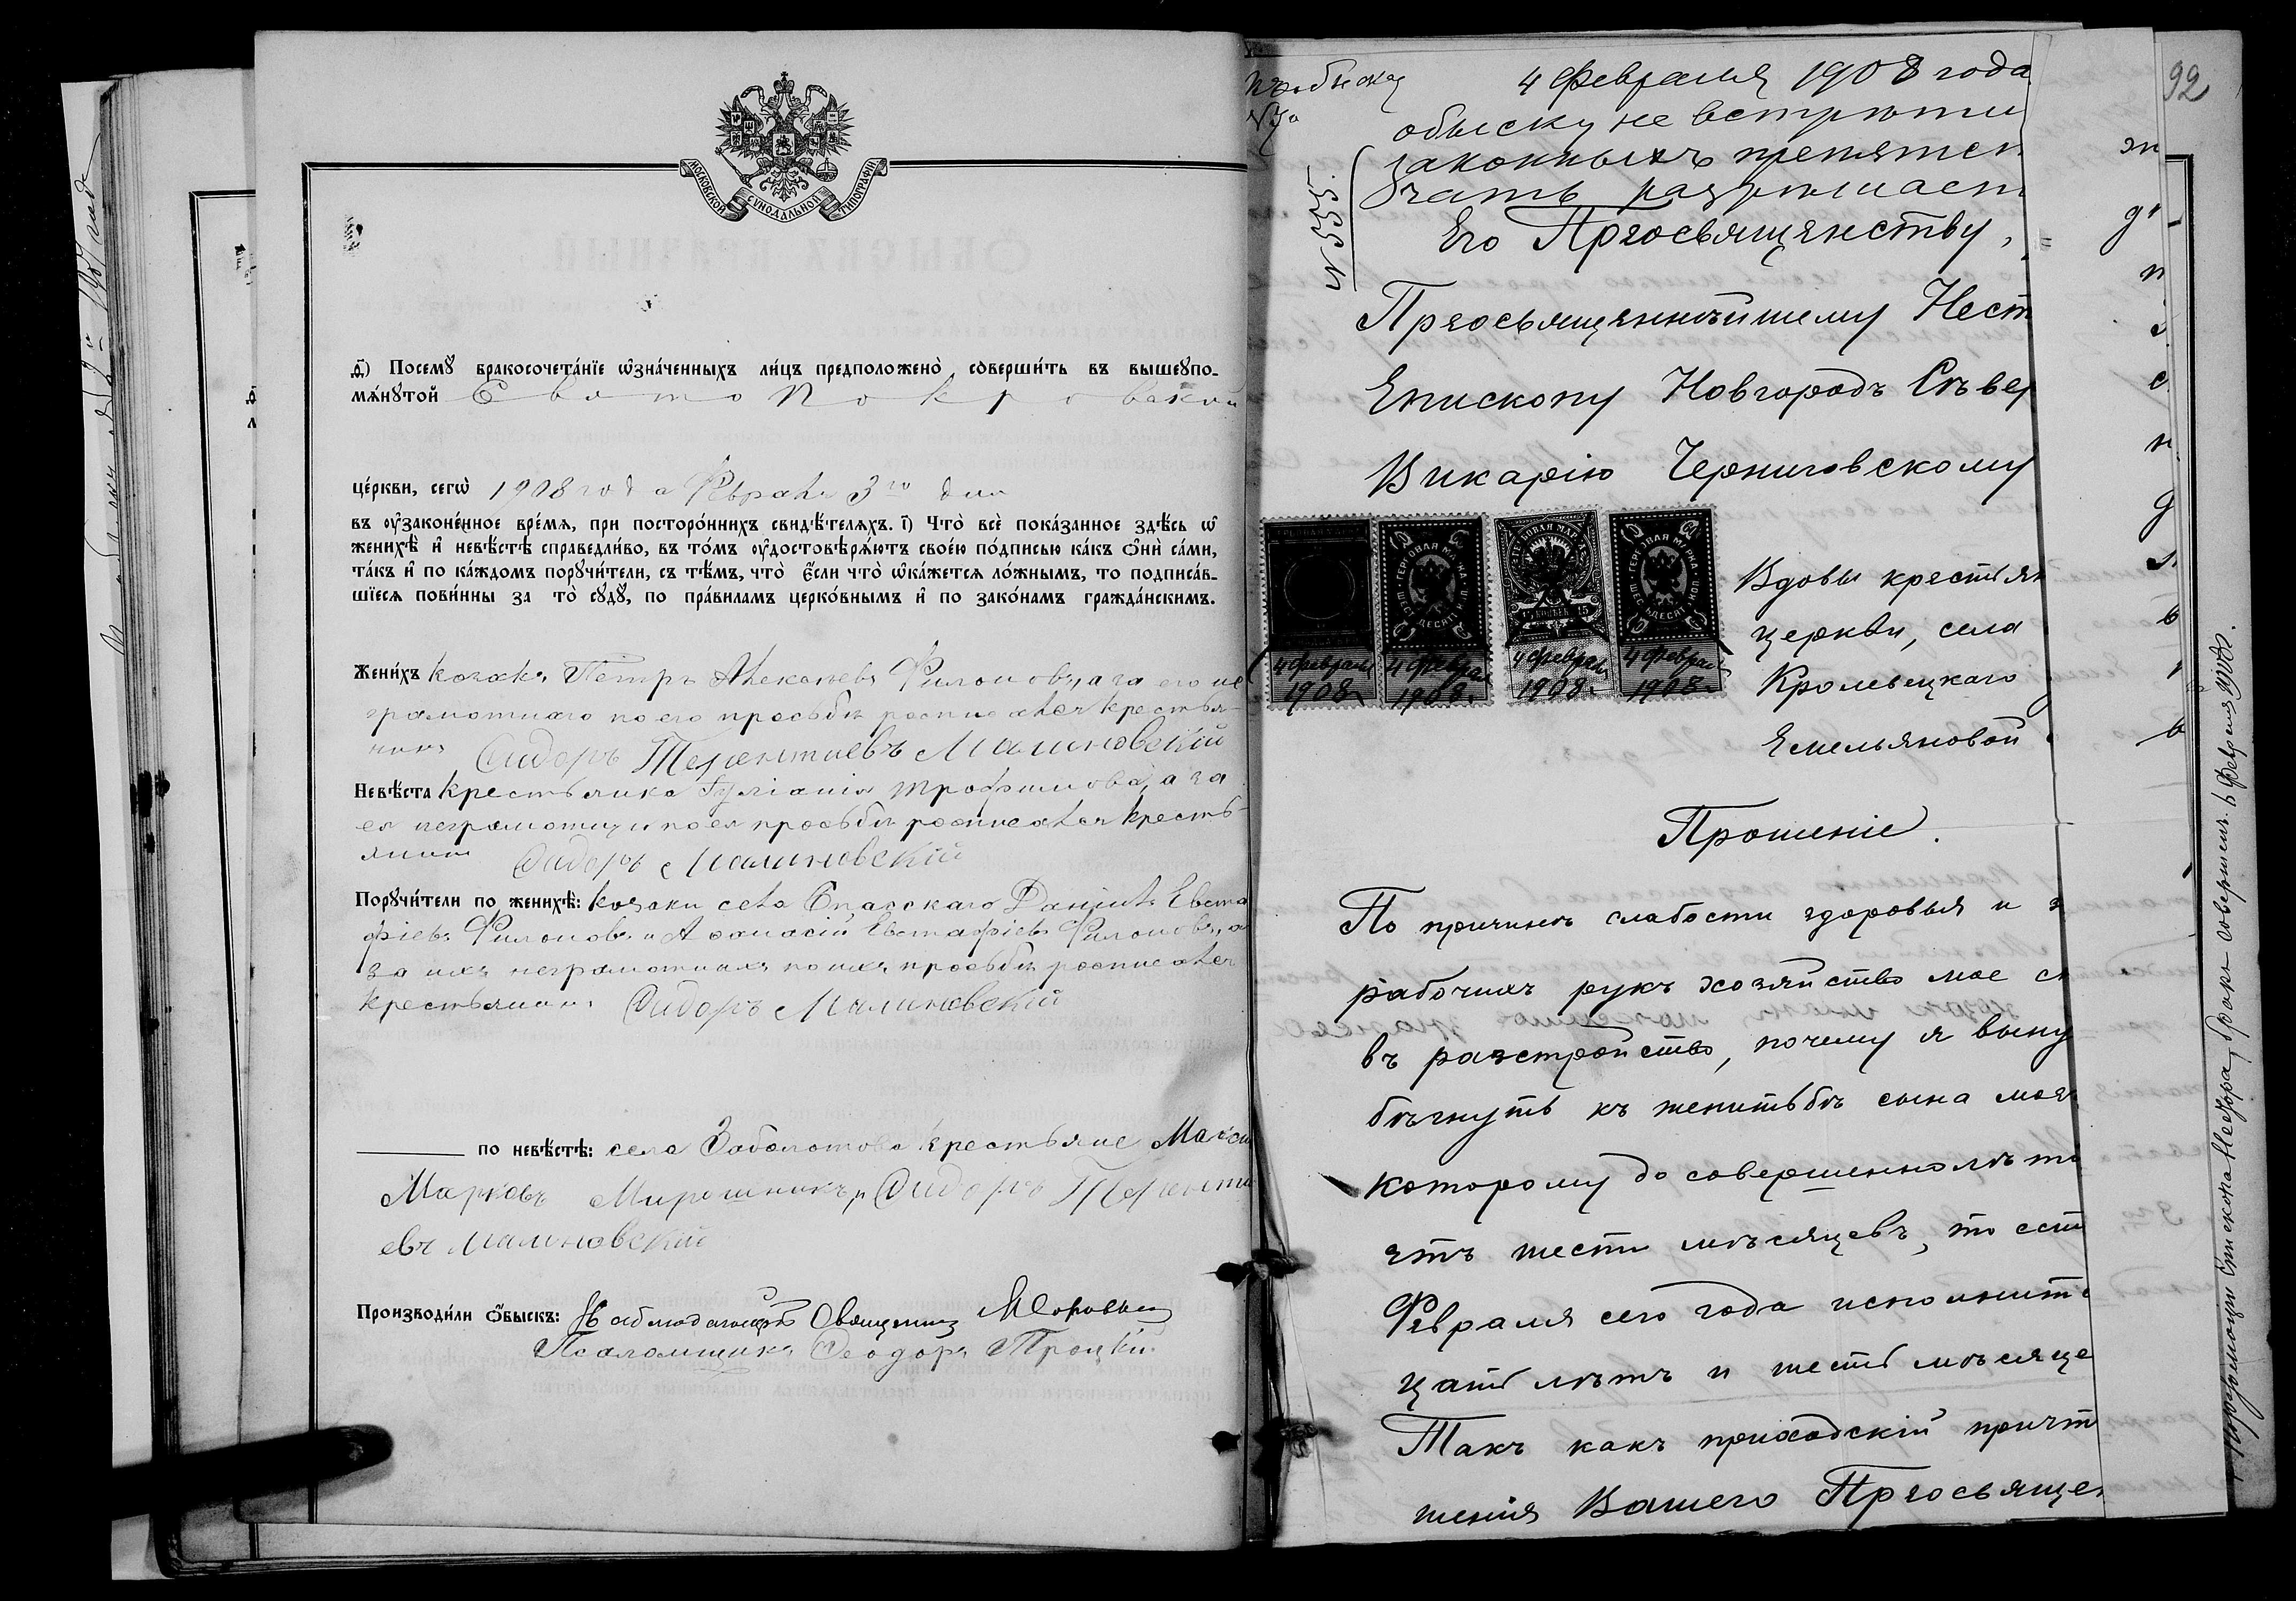 МОСКОВСКОЙ СѴНОДАЛЬНОЙ ТИПОГРАФІИ
д҃) Посемꙋ̀ бракосочета́нїе ѡ҆зна́ченныхъ ли́цъ предположено̀ соверши́ть въ вышеꙋпо-
мѧ́нꙋтой Свято Покровской
це́ркви, сегѡ̀ 1908 года Февраля 3го дня
въ ᲂу҆законе́нное вре́мѧ, при посторо́ннихъ свидѣ́телѧхъ. і҃) Что̀ всѐ пока́занное здѣ́сь ѡ҆
женихѣ̀ и҆ невѣ́стѣ справедли́во, въ то́мъ ᲂу҆достовѣрѧ́ютъ свое́ю по́дписью ка́къ ѻ҆нѝ са́ми,
та́къ и҆ по ка́ждомъ порꙋчи́тели, съ тѣ́мъ, что̀ є҆́сли что̀ ѡ҆ка́жетсѧ ло́жнымъ, то подписа́в-
шїесѧ пови́нны за то̀ сꙋдꙋ̀, по пра́виламъ церко́внымъ и҆ по зако́намъ гражда́нскимъ.
Жени́хъ козакъ Петръ Алексеевъ Филоновъ, а за его не
грамотнаго по его просьбѣ росписался крестья-
нинъ Сидоръ Терентиевъ Малиновскій
Невѣ́ста крестьянка Іуліанія Трофимова, а за
ея неграмотную по ея просьбѣ росписался кресть
янинъ Сидоръ Малиновскій
Порꙋчи́тели по женихѣ̀: козаки села Спасскаго Даніилъ Евста
фіевъ Филоновъ и Аѳанасій Евстафіевъ Филоновъ, а
за ихъ неграмотныхъ по ихъ просьбѣ росписался
крестьянинъ Сидоръ Малиновскій
по невѣ́стѣ: села Заболотова крестьяне Макси
Марковъ Мирошникъ, и Сидоръ Теренти
евъ Малиновскій
Производи́ли ѻ҆́быскъ: Наблюдающій Священникъ
Псаломщикъ Ѳеодоръ Троцкій
92
къ обыску
4 Февраля 1908 года
обыску не встрѣти
законныхъ препятст
чать разрѣшает
№ 535.
Его Преосвященству,
Преосвященнѣйшему Нест
Епископу Новгородъ Сѣвер
Викарію Черниговскому
4 Февраля 1908
4 Февраля 1908
4 Февраля 1908
4 Февраля 1908
Вдовы крестьян
церкви, села
Кролевецкаго
Емельяновой
Прошеніе.
По причинѣ слабости здоровья и
рабочихъ рукъ хозяйство мое
въ разстройство, почему я выну
бѣгнуть къ женитьбѣ сына моег
которому до совершеннолѣтi
етъ шести мѣсяцевъ, то ест
Февраля сего года исполнитс
цать лѣтъ и шесть мѣсяце
Такъ какъ приходскій причт
шенія Вашего Преосвящен
бракъ совершенъ 6 Февраля 1908 г.